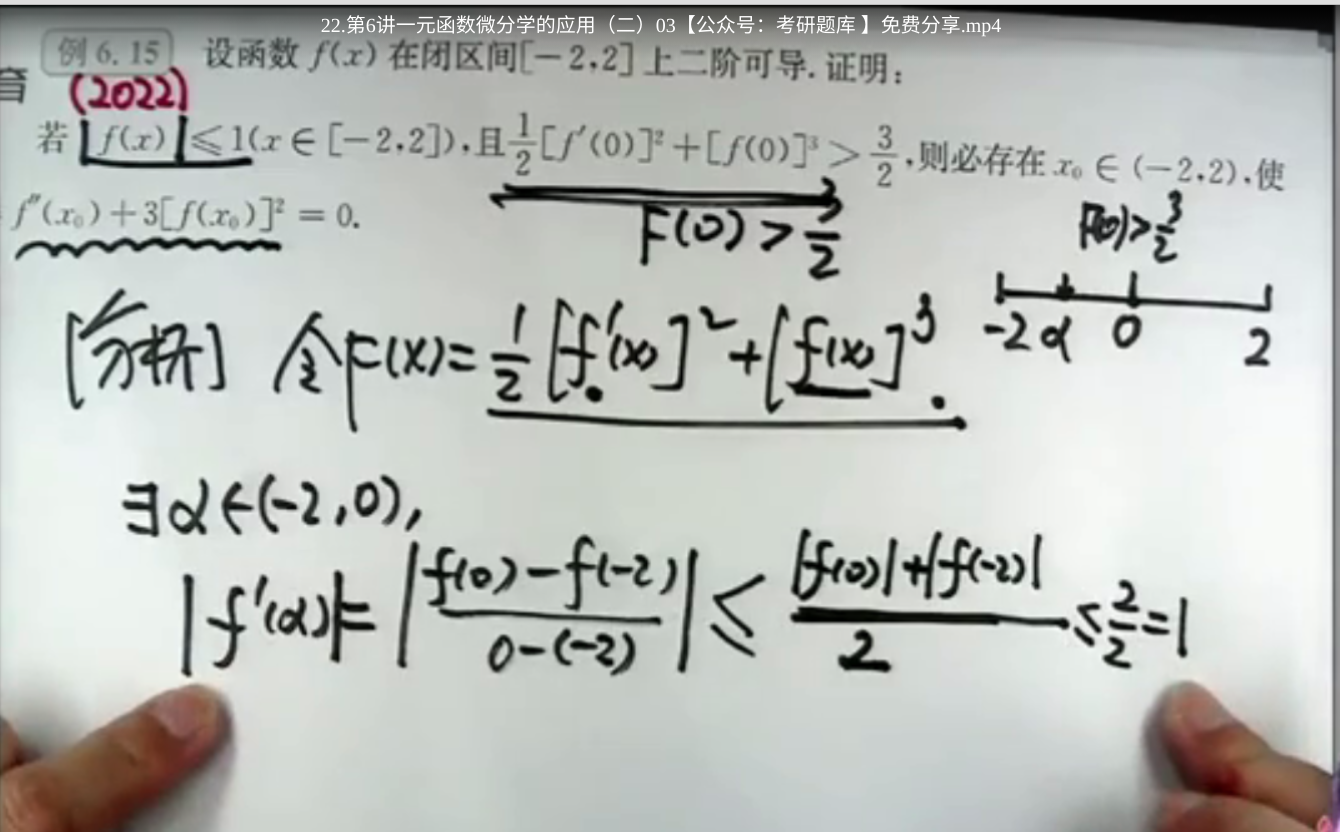 22.第6讲一元函数微分学的应用（二）03【公众号：考研题库 】免费分享.mp4
例 6.15 设函数 f(x) 在闭区间[－2,2] 上二阶可导. 证明：
育 (2022)
若 |f(x)| ≤ 1(x ∈ [－2,2]),且 1/2 [f′(0)]² + [f(0)]³ > 3/2 ,则必存在 x₀ ∈ (－2,2),使
f″(x₀) + 3[f(x₀)]² = 0.
F(0) > 3/2
F(0)>3/2
-2 α 0 2
[分析] 令F(x)= 1/2 [f′(x)]² + [f(x)]³.
∃α∈(-2,0),
|f′(α)|= |f(0)-f(-2)/0-(-2)| ≤ |f(0)|+|f(-2)|/2 ≤ 2/2 =1